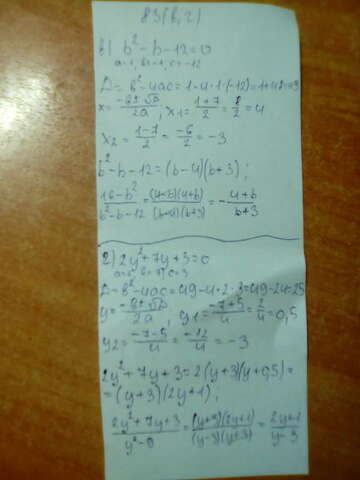 83(в,г)
в) b²-b-12=0
a=1, b=-1, c=-12
D=b²-4ac=1-4·1·(-12)=1+48=49
x=-b±√D/2a; x₁=1+7/2=8/2=4
x₂=1-7/2=-6/2=-3
b²-b-12=(b-4)(b+3);
16-b²/b²-b-12=(4-b)(4+b)/(b-4)(b+3)=-4+b/b+3
г) 2y²+7y+3=0
a=2, b=7, c=3
D=b²-4ac=49-4·2·3=49-24=25
y=-b±√D/2a, y₁=-7+5/4=2/4=0,5
y₂=-7-5/4=-12/4=-3
2y²+7y+3=2(y+3)(y+0,5)=
=(y+3)(2y+1);
2y²+7y+3/y²-9=(y+3)(2y+1)/(y-3)(y+3)=2y+1/y-3